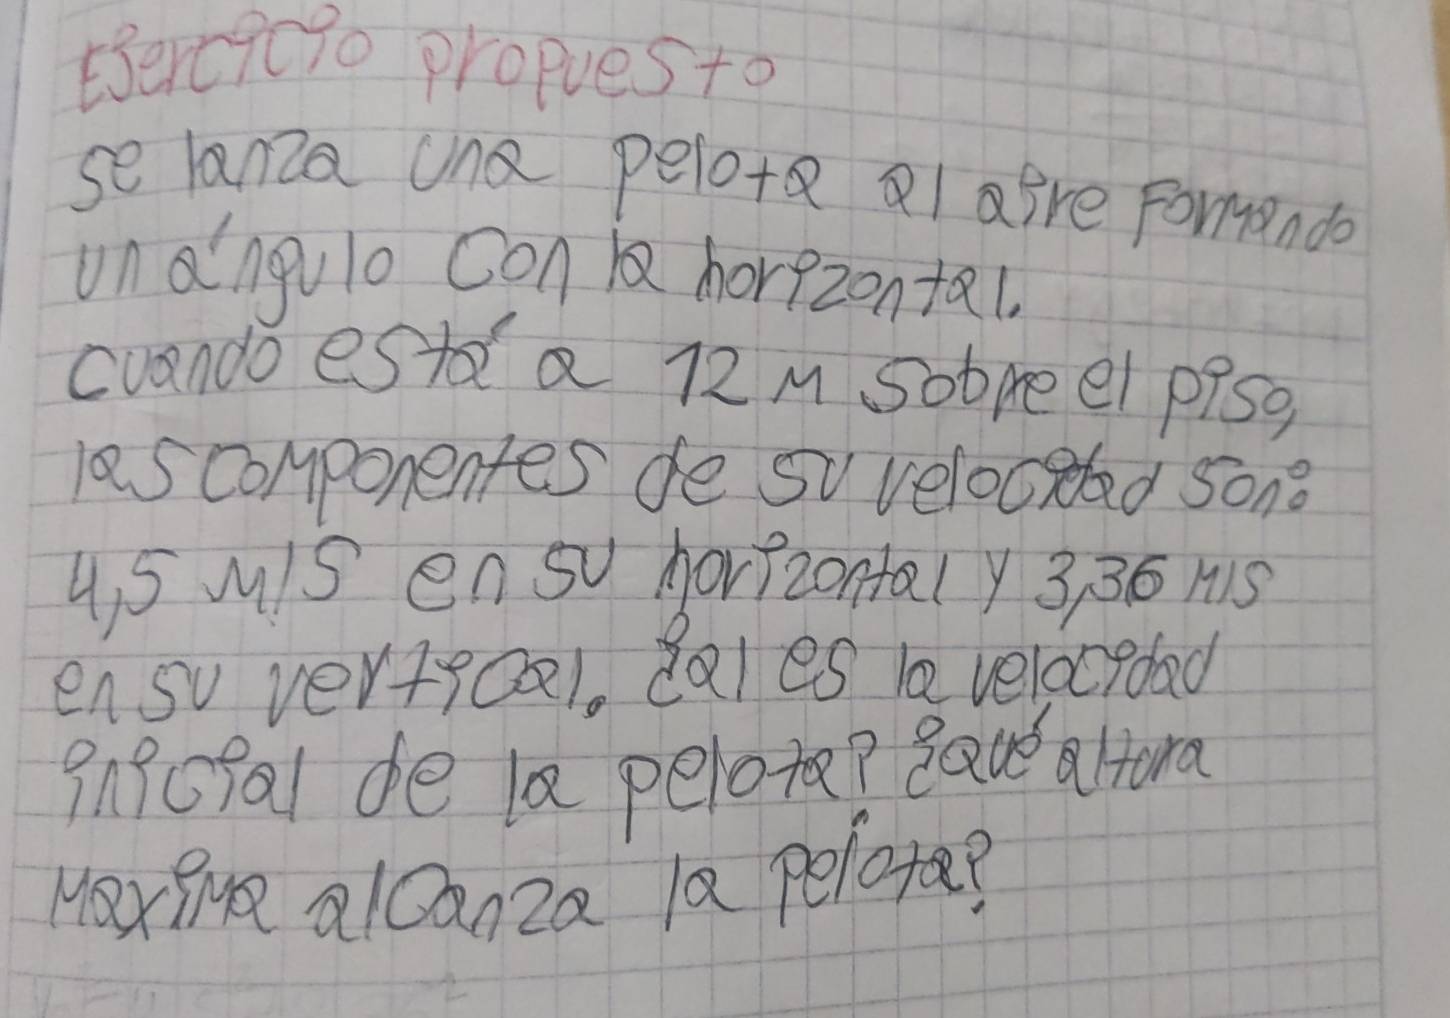 Ejercicio propuesto
se lanza una pelota al aire Formando
un ángulo con la horizontal.
cuando está a 12 M sobre el piso,
las componentes de su velocidad son:
4,5 M/S en su horizontal y 3,36 M/S
en su vertical. ¿al es la velocidad
inicial de la pelota? ¿qué altura
Maxima alcanza la pelota?